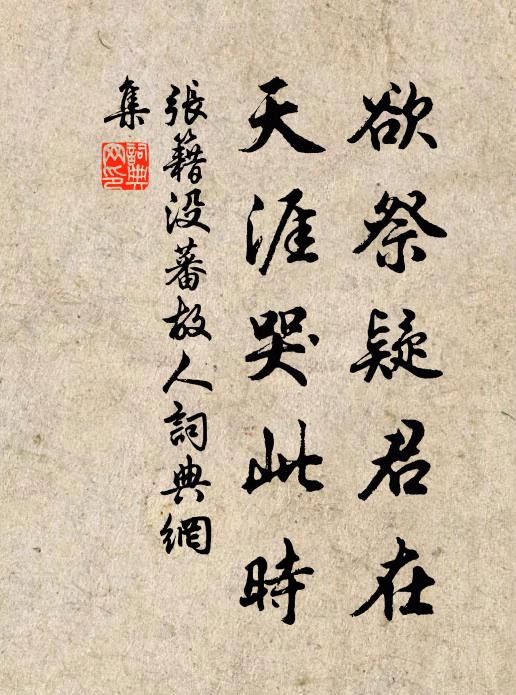 欲祭疑君在
天涯哭此時
張籍沒蕃故人詞典網
集
詞典
网印